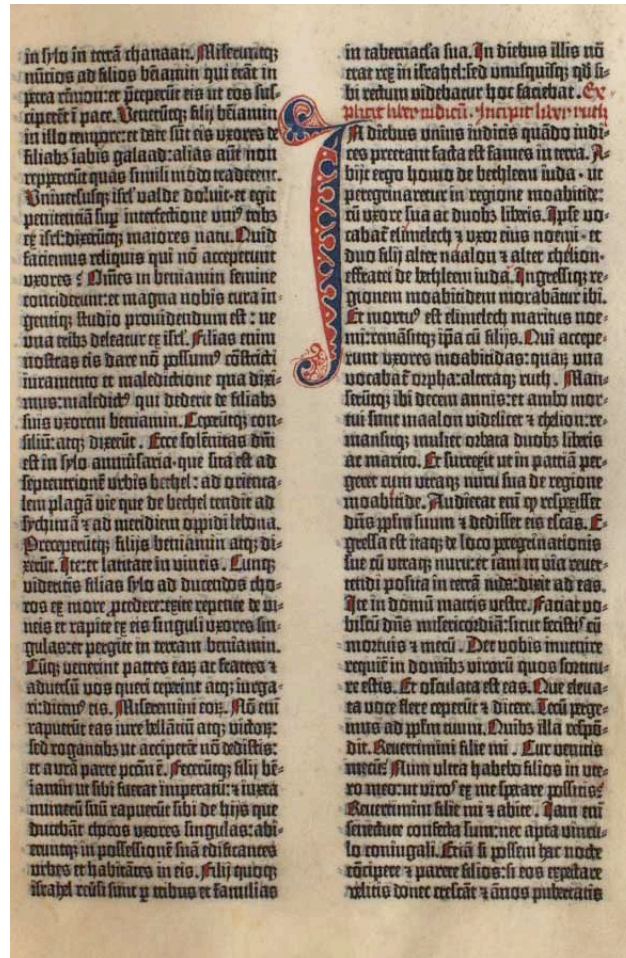 in sylo in terrā chanaan. Miserūtq;
nūcios ad filios bēiamin qui erāt in
petra rēmon: et p̄ceperūt eis ut eos sus-
ciperēt ī pace. Venerūtq; filij bēiamin
in illo tempore: et date sūt eis uxores de
filiabꝫ iabis galaad: alias aūt non
reppererūt quas simili modo traderent.
Universusq; isrl' valde doluit: et egit
penitentiā sup̄ interfectione uniꝰ tribꝫ
ex isrl'. dixerūtq; maiores natu. Quid
faciemus reliquis qui nō acceperunt
uxores? Om̄es in beniamin femine
conciderunt: et magna nobis cura in-
gentiq; studio providendum est: ne
una tribꝫ deleatur ex isrl'. Filias enim
nostras eis dare nō possumꝰ cōstricti
iuramento et maledictione qua dixi-
mus: maledictꝰ qui dederit de filiabꝫ
suis uxorem beniamin. Ceperūtq; con-
siliū: atq; dixerūt. Ecce solēnitas dn̄i
est in sylo anniv̄saria. que sita est ad
septentrionē urbis bethel: ad orienta-
lem plagā vie que de bethel tendit ad
sychimā ⁊ ad meridiem oppidi lebona.
Preceperūtq; filijs beniamin atq; di-
xerūt. Ite: et latitate in vineis. Cunq;
videritis filias sylo ad ducendos cho-
ros ex more p̄cedere: exite repente de vi-
neis et rapite ex eis singuli uxores sin-
gulas: et pergite in terram beniamin.
Cūq; venerint patres eaꝝ at fratres ⁊
adversū vos queri ceperint atq; iurga-
ri: dicemꝰ eis. Miseremini eoꝝ. Nō em̄
rapuerūt eas iure bellātiū atq; victoꝝ:
sed rogantibꝫ ut acciperēt nō dedistis:
et a vr̄a parte pctm̄ ē. Fecerūtq; filij bē-
iamin ut sibi fuerat imperatū: ⁊ iuxta
numerū suū rapuerūt sibi de hijs que
ducebāt choros uxores singulas: abi-
eruntq; in possessionē suā edificantes
urbes et habitātes in eis. Filij quoq;
israhel rev̄si sunt ꝑ tribus et familias
in tabernacl'a sua. In diebus illis nō
erat rex in israhel: sed unusquisq; qd̄ si-
bi rectum videbatur hoc faciebat. Ex-
plicit liber iudicū. Incipit liber ruth
In diebus unius iudicis quādo iudi-
ces preerant facta est fames in terra. A-
bijt ergo homo de bethleem iuda. ut
peregrinaretur in regione moabitide:
cū uxore sua ac duobꝫ liberis. Ipse vo-
cabat̄ elimelech ⁊ uxor eius noemi. et
duo filij alter maalon ⁊ alter chelion.
effratei de bethleem iuda. Ingressiq; re-
gionem moabitidem morabātur ibi.
Et mortuꝰ est elimelech maritus noe-
mi: remāsitq; ip̄a cū filijs. Qui accepe-
runt uxores moabitidas: quaꝝ una
vocabat̄ orpha: altera q; ruth. Man-
serūtq; ibi decem annis: et ambo mor-
tui sunt maalon videlicet ⁊ chelion: re-
mansitq; mulier orbata duobꝫ liberis
ac marito. Et surrexit ut in patriā per-
geret cum utraq; nuru sua de regione
moabitide. Audierat em̄ ꝙ respexisset
dn̄s pplm̄ suum ⁊ dedisset eis escas. E-
gressa est itaq; de loco peregrinationis
sue cū utraq; nuru: et iam in via rever-
tendi posita in terrā iuda: dixit ad eas.
Ite in domū matris vestre. Faciat vo-
biscū dn̄s misericordiā: sicut fecistis cū
mortuis ⁊ mecū. Det vobis invenire
requiē in domibꝫ virorū quos sortitu-
re estis. Et osculata est eas. Que eleva-
ta voce flere ceperūt ⁊ dicere. Tecū perge-
mus ad pplm̄ tuum. Quibꝫ illa respō-
dit. Revertimini filie mi. Cur venitis
mecū? Num ultra habebo filios in ute-
ro meo: ut viros ex me sperare possitis?
Revertimini filie mi ⁊ abite. Iam em̄
senectute confecta sum: nec apta vincu-
lo coniugali. Etiā si possem hac nocte
cōcipere ⁊ parere filios: si eos expectare
velitis donec crescāt ⁊ ānos pubertatis